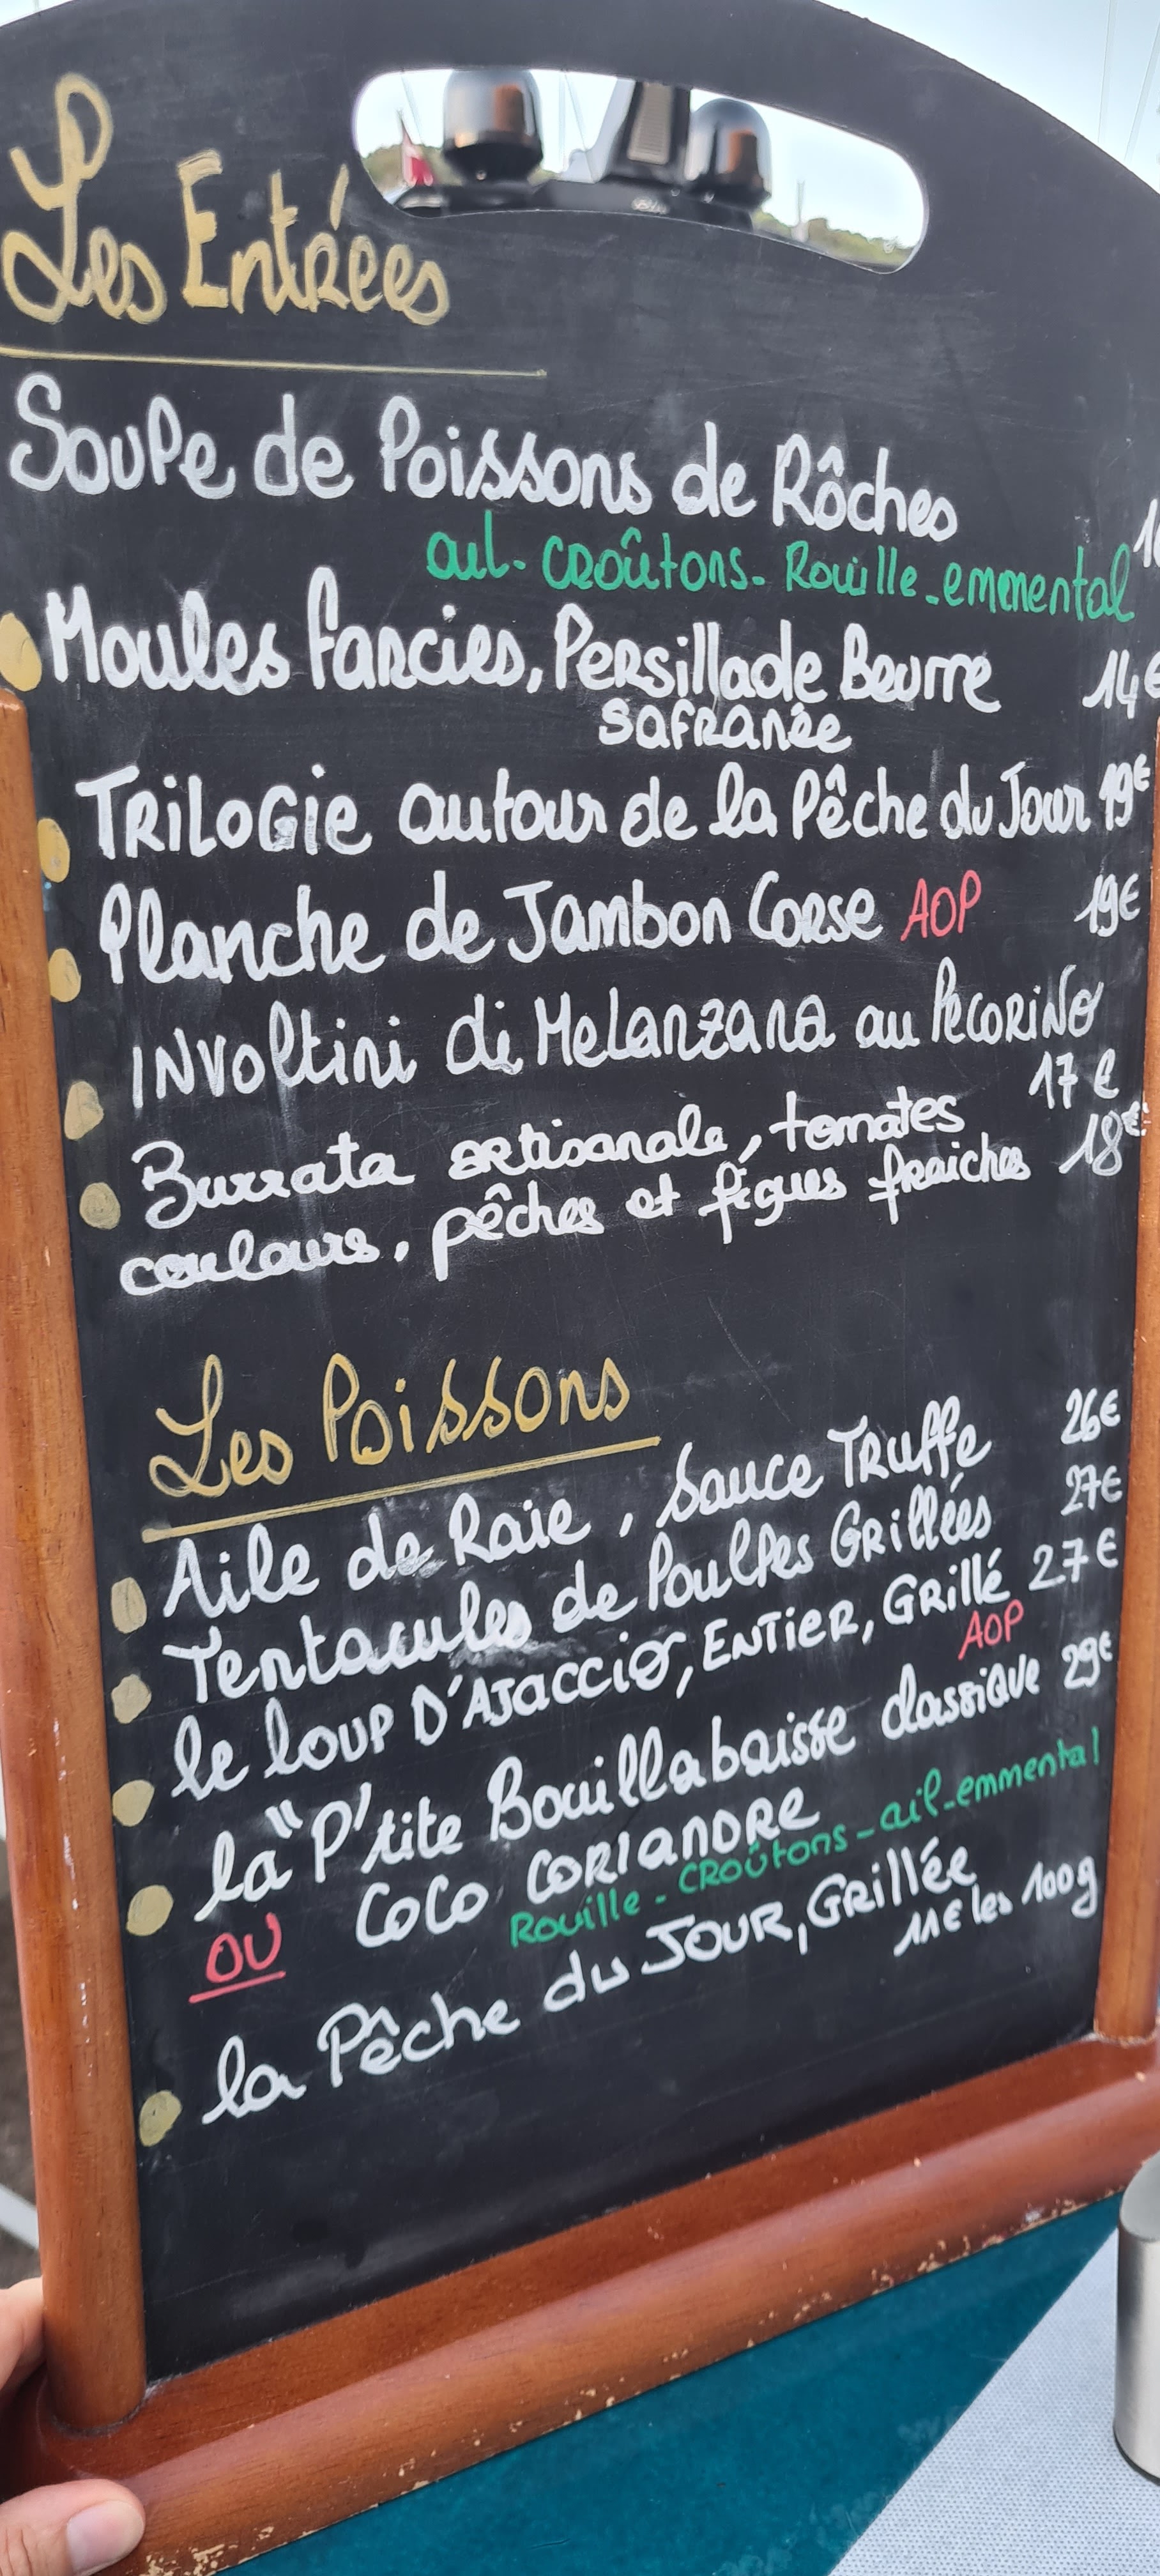 Les Entrées
Soupe de Poissons de Rôches
ail - croûtons - Rouille - emmental
Moules farcies, Persillade Beurre 14€
safranée
Trilogie autour de la Pêche du Jour 19€
Planche de Jambon Corse AOP 19€
Involtini di Melanzana au Pecorino
17€
Burrata artisanale, tomates 18€
couleurs, pêches et figues fraiches
Les Poissons
Aile de Raie, Sauce Truffe 26€
Tentacules de Poulpes Grillées 27€
le loup D'Ajaccio, Entier, Grillé 27€
AOP
la "P'tite Bouillabaisse classique 29€
OU Coco Coriandre
Rouille - Croûtons - ail - emmental
la Pêche du Jour, Grillée
11€ les 100g